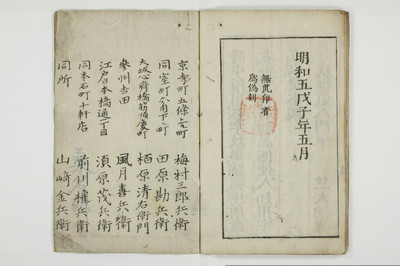 明和五戊子年五月
無此印者
為偽刻
京寺町五條上ル町
梅村三郎兵衛
同室町
田原勘兵衛
大坂心斎橋筋順慶町
柏原清右衛門
参州吉田
風月喜兵衛
江戸日本橋通一丁目
須原茂兵衛
同本石町十軒店
前川權兵衛
同所
山崎金兵衛